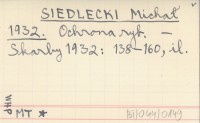 SIEDLECKI Michał
1932. Ochrona ryb. –
Skarby 1932: 138–160, il.
WHP MT *